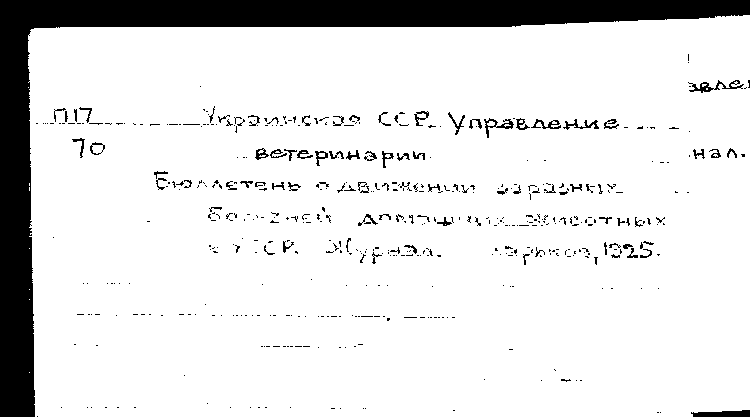 П17 Украинская ССР. Управление
70 ветеринарии
Бюллетень о движении заразных
болезней домашних животных
в УССР. Журнал. Харьков, 1925.
нал.